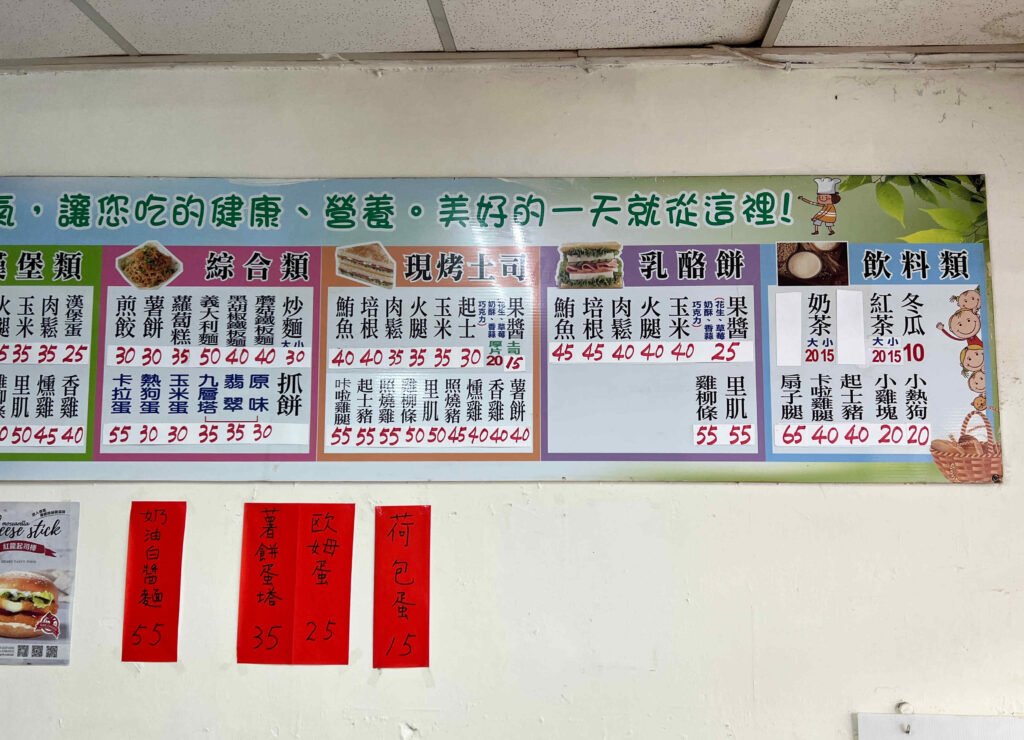 氣，讓您吃的健康、營養。美好的一天就從這裡!
堡類
漢堡蛋 25
肉鬆 35
玉米 35
香雞 40
燻雞 45
綜合類
炒麵 大 小 30
蘑菇鐵板麵 40
黑胡椒鐵板麵 40
義大利麵 50
蘿蔔糕 35
薯餅 30
煎餃 30
抓餅
原味 30
翡翠 35
九層塔 35
玉米蛋 30
熱狗蛋 30
卡拉蛋 55
現烤土司
果醬(花生、草莓、奶酥、香蒜、巧克力) 土司 15 厚片 20
起士 30
玉米 35
火腿 35
肉鬆 35
培根 40
鮪魚 40
薯餅 40
香雞 40
燻雞 40
照燒豬 45
里肌 50
雞柳條 50
照燒雞 55
起士豬 55
卡啦雞腿 55
乳酪餅
果醬(花生、草莓、奶酥、香蒜、巧克力) 25
玉米 40
火腿 40
肉鬆 40
培根 45
鮪魚 45
里肌 55
雞柳條 55
飲料類
冬瓜 10
紅茶 大 小 20 15
奶茶 大 小 20 15
小熱狗 20
小雞塊 20
起士豬 40
卡啦雞腿 40
扇子腿 65
mozzarella
cheese stick
紅龍起司棒
奶油白醬麵
55
薯餅蛋塔
35
歐姆蛋
25
荷包蛋
15